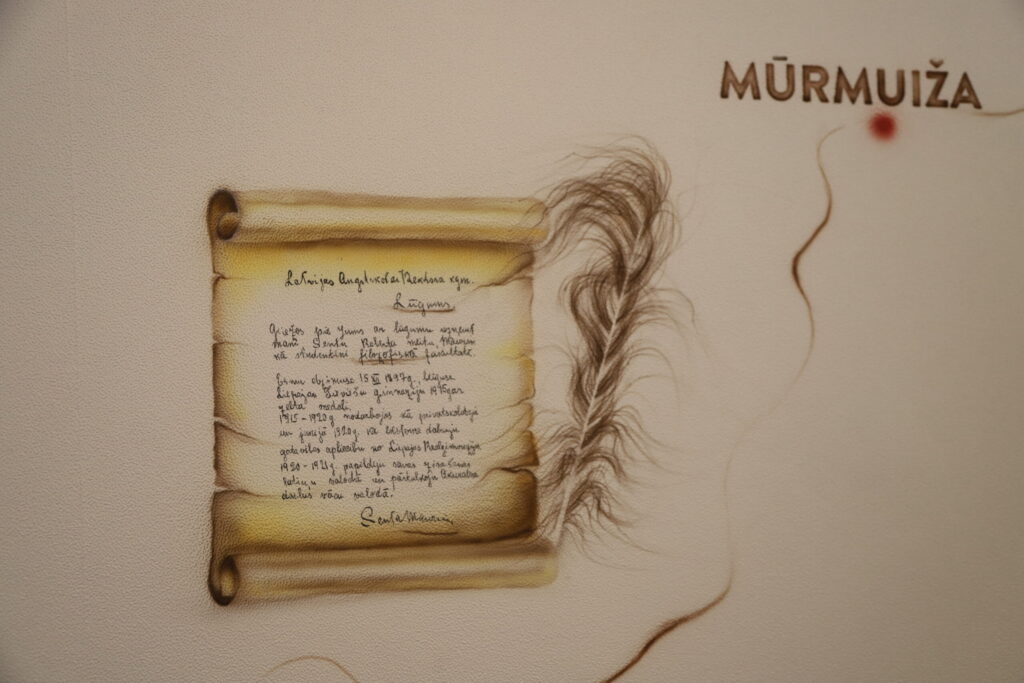 MŪRMUIŽA
Latvijas Augstskolas Rektora kgm.
Lūgums.
Griežos pie Jums ar lūgumu uzņemt
mani Sentu Roberta meitu, Mauriņ
kā studentini filozofiskā fakultātē.
Esmu dzimuse 15 XII 1897 g., beiguse
Liepājas Sieviešu ģimnaziju 1915 gar
zelta medali.
1915-1920 g nodarbojos kā privatskolotāja
un junijā 1920 g. kā eksterne dabuju
gatavības apliecību no Liepājas
1920-1921 g. papildiju savas zinašanas
latiņu valodā un pārtulkoju
darbus vācu valodā.
Senta Mauriņ,